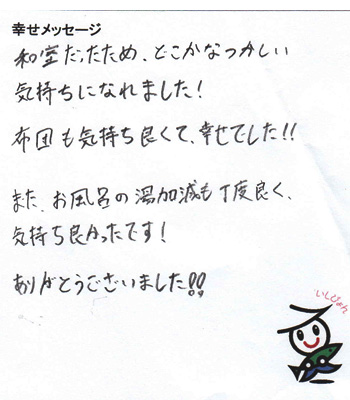 幸せメッセージ
和室だったため、どこかなつかしい
気持ちになれました!
布団も気持ち良くて、幸せでした!!
また、お風呂の湯加減も丁度良く、
気持ち良かったです!
ありがとうございました!!
いしぴょん